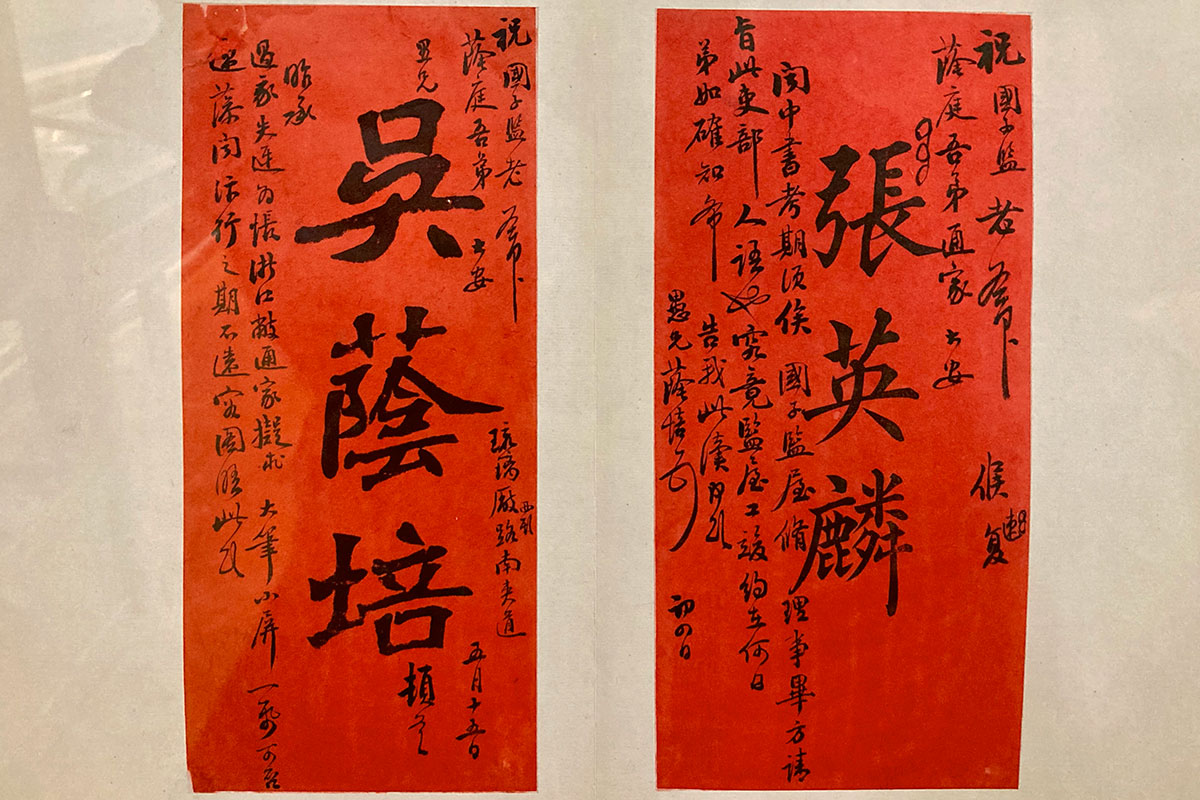 祝
國子監老爺
蔭庭吾弟通家 大安
張英麟
候
復
內中書考期須俟 國子監屋修理事畢方請
旨此吏部人語也究竟監屋工竣約在何日
弟如確知希 告我此瀆
愚兄蔭培
初四日
祝
國子監老爺
蔭庭吾弟 大安
愚兄
吳蔭培
頓
琉璃廠西頭路南夾道
五月十五日
昨承
過家失迓為悵 敝通家 大筆小屏
行之期不遠容圖晤此